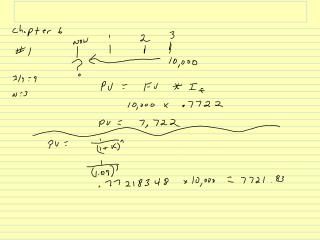 Chapter 6
#1
NOW 1 2 3
?
10,000
I/Y = 9
N = 3
PV = FV * I
10,000 x .7722
PV = 7,722
PV = 1/(1+k)^n
1/(1.09)^3
.77218348 x 10,000 = 7721.83